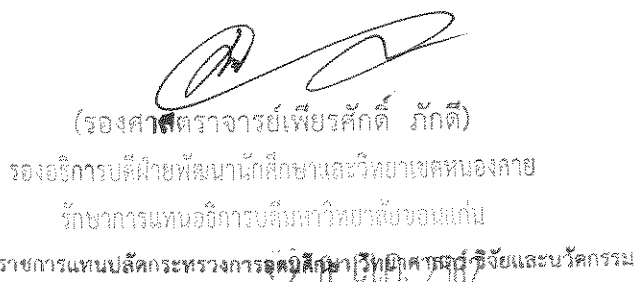 (รองศาสตราจารย์เพียรศักดิ์ ภักดี)
รองอธิการบดีฝ่ายพัฒนานักศึกษาและวิทยาเขตหนองคาย
รักษาการแทนอธิการบดีมหาวิทยาลัยขอนแก่น
ราชการแทนปลัดกระทรวงการอุดมศึกษา วิทยาศาสตร์ วิจัยและนวัตกรรม